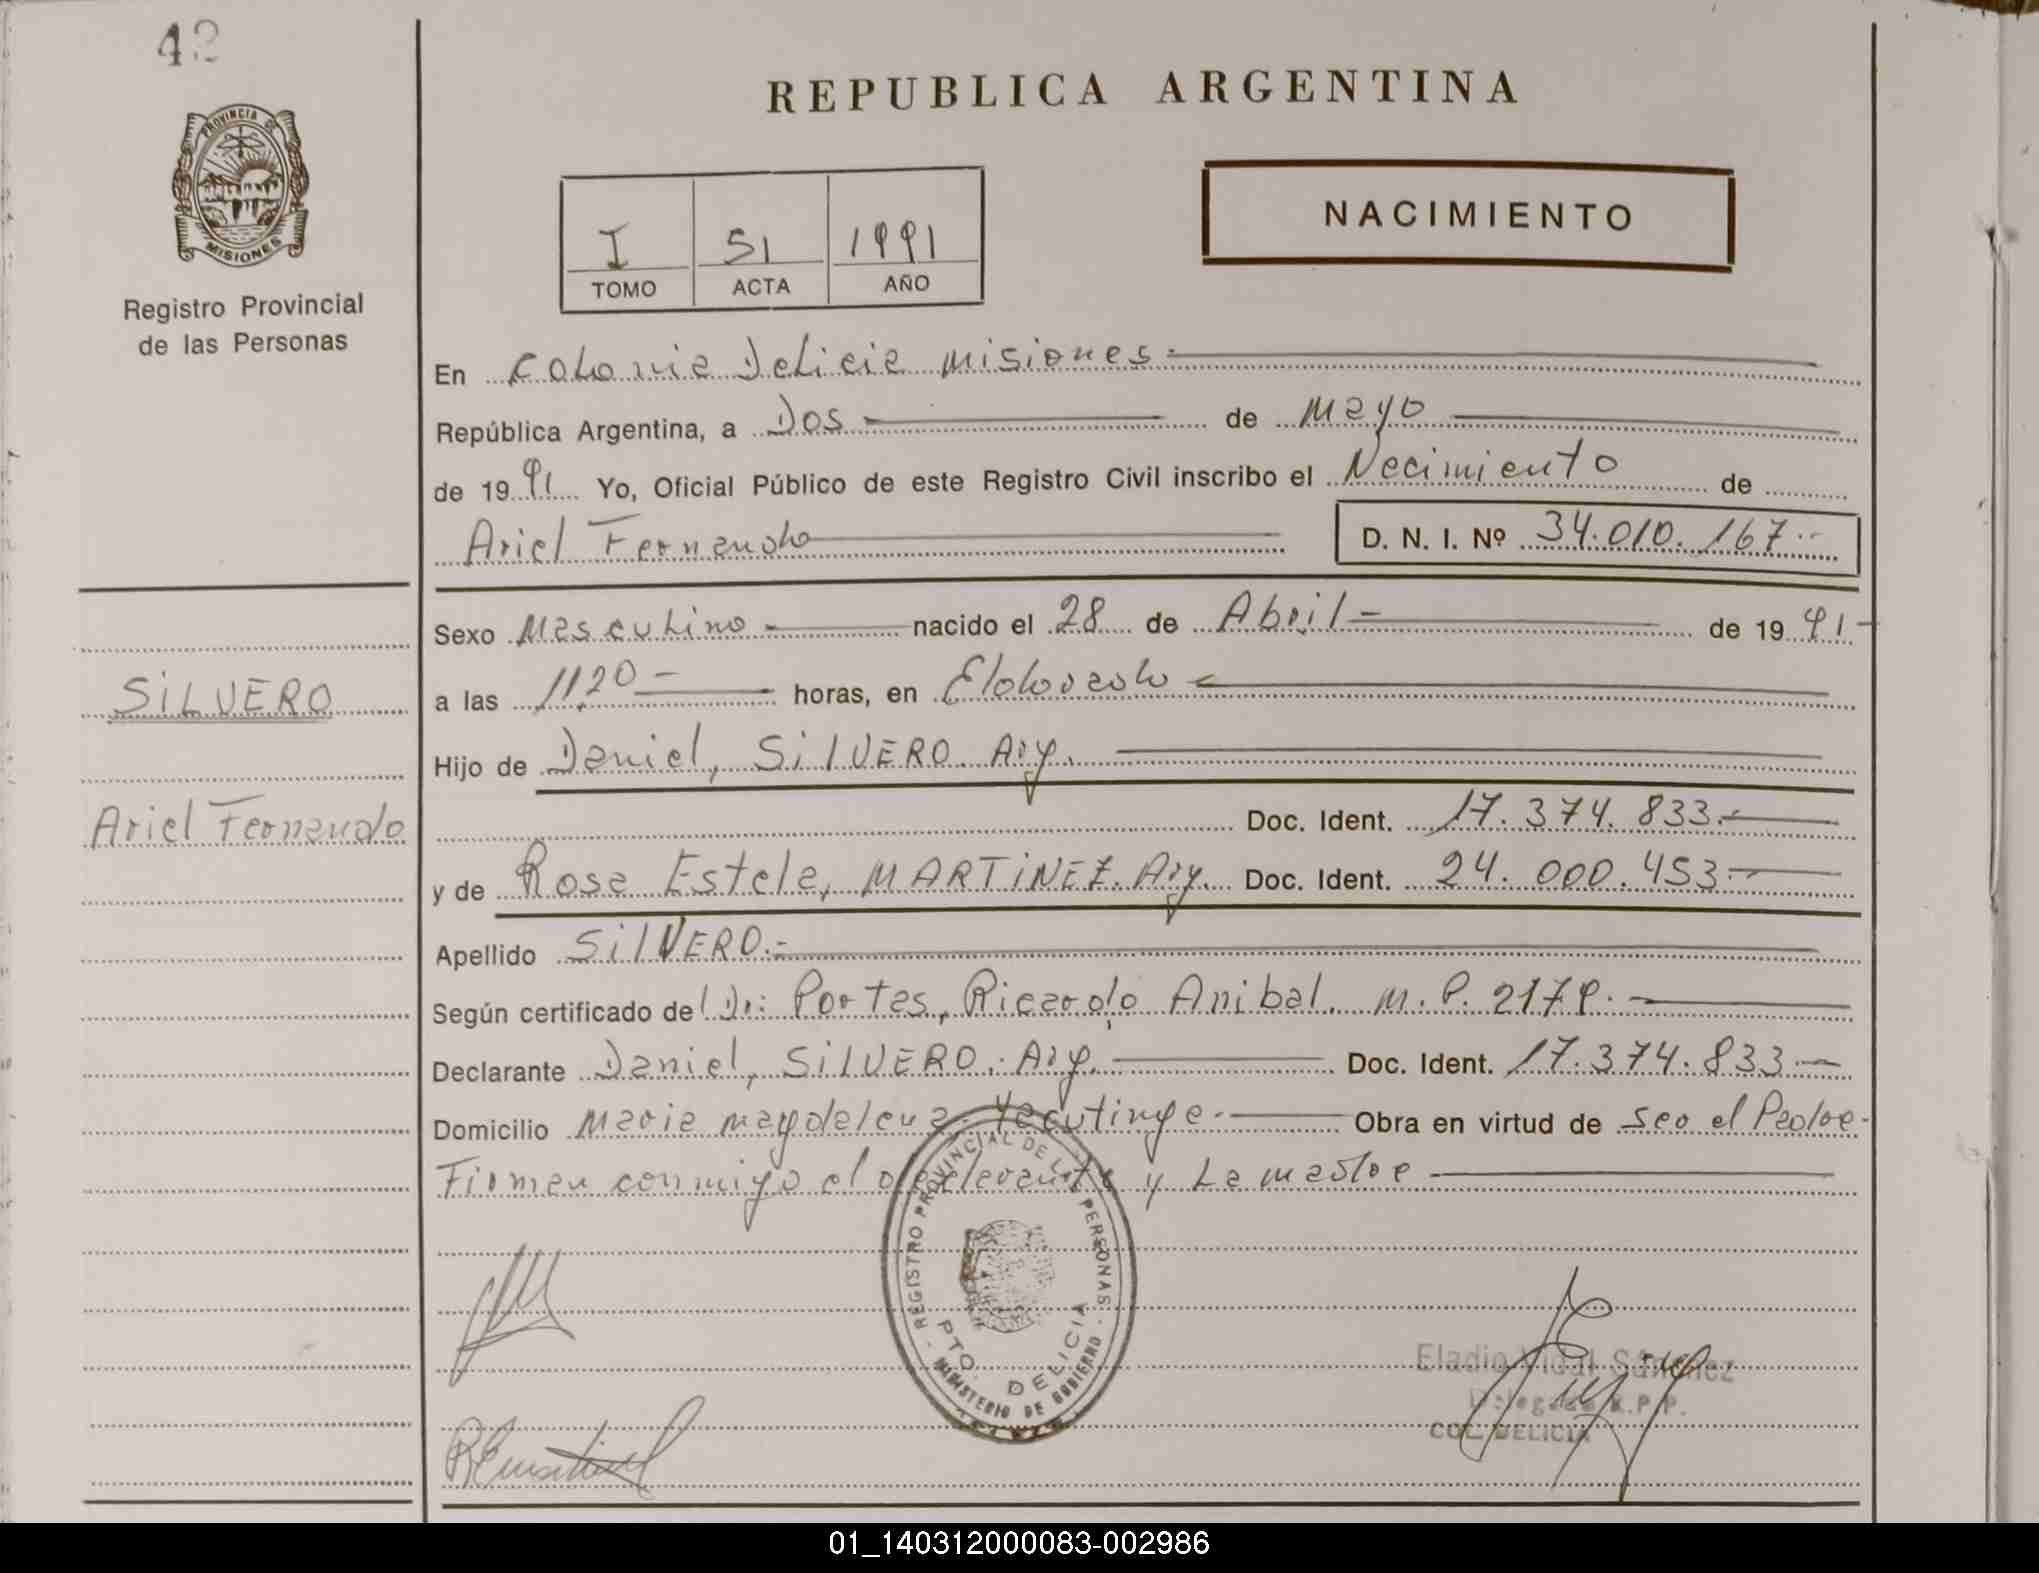 42
PROVINCIA DE
MISIONES
Registro Provincial
de las Personas
REPUBLICA ARGENTINA
I 51 1991
TOMO ACTA AÑO
NACIMIENTO
En Colonia Delicia Misiones.-
República Argentina, a Dos de Mayo
de 1991 Yo, Oficial Público de este Registro Civil inscribo el Nacimiento de
Ariel Fernando D. N. I. Nº 34.010.167.-
Sexo Masculino - nacido el 28 de Abril - de 1991-
SILVERO
a las 11,20 - horas, en Eldorado -
Hijo de Daniel, SILVERO. Arg.
Ariel Fernando
Doc. Ident. 17.374.833.-
y de Rosa Estela, MARTINEZ. Arg. Doc. Ident. 24.000.453.-
Apellido SILVERO.-
Según certificado del Dr: Portas, Ricardo Anibal. M.P. 2179.-
Declarante Daniel, SILVERO. Arg. Doc. Ident. 17.374.833.-
Domicilio Maria Magdalena. Yacutinga.- Obra en virtud de Seo el Padre-
Firman conmigo el declarante y La madre
REGISTRO PROVINCIAL DE LAS PERSONAS
PTO. DELICIA
MINISTERIO DE GOBIERNO
Eladio Vidal Sánchez
Delegado R.P.P.
COL. DELICIA
01_140312000083-002986